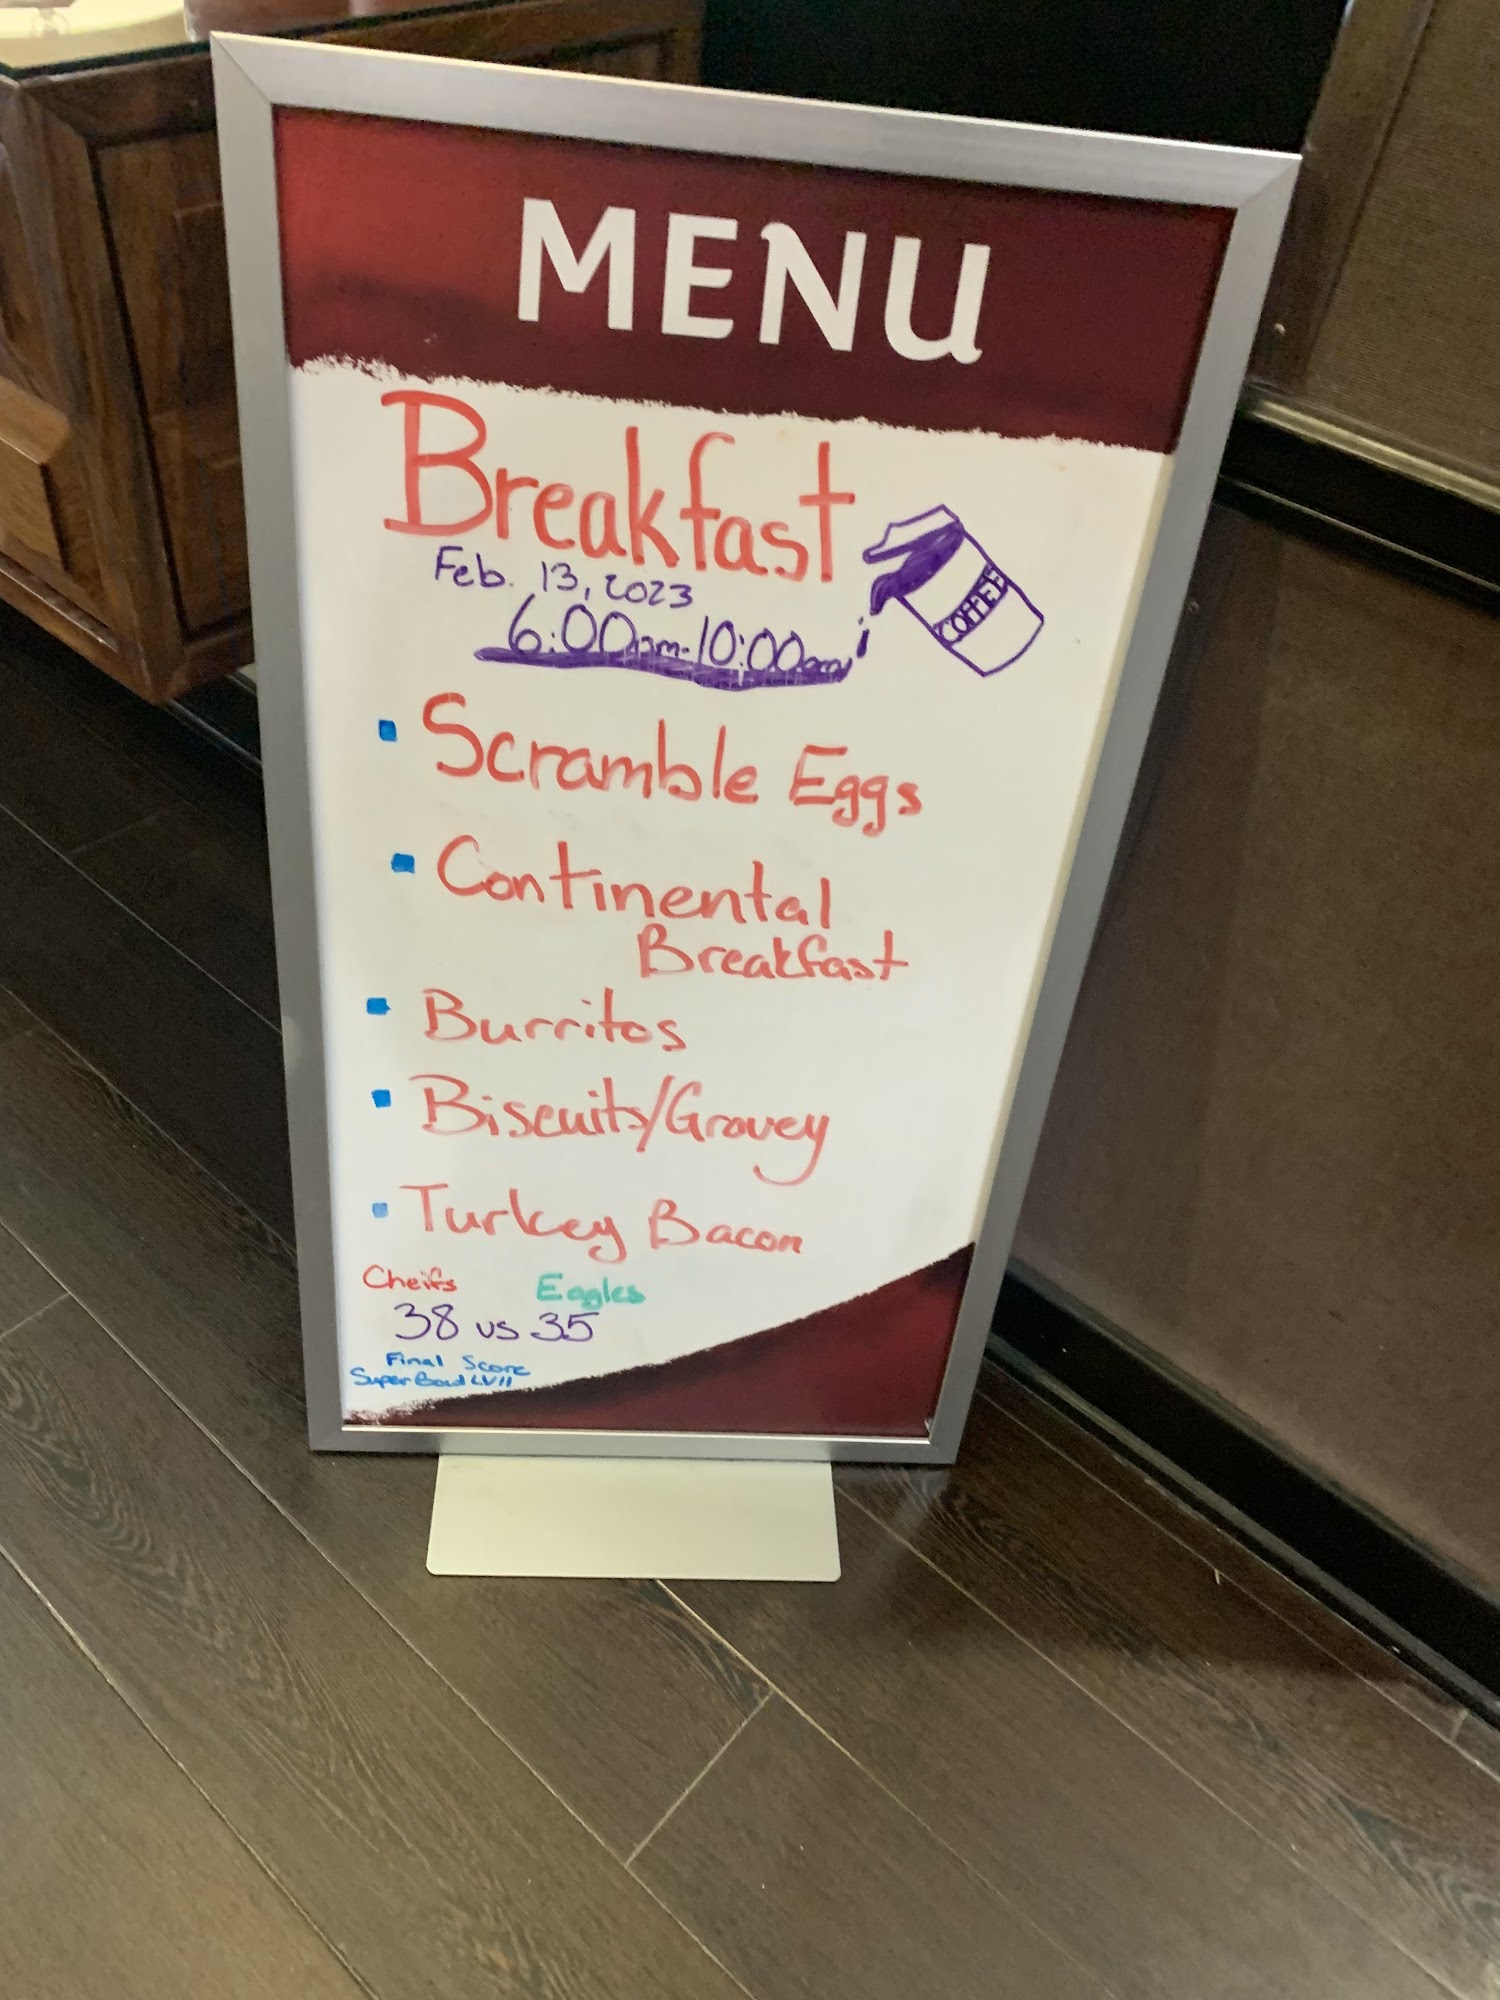 MENU
Breakfast
Feb. 13, 2023
COFFEE
6:00am-10:00am
▪ Scramble Eggs
▪ Continental
Breakfast
▪ Burritos
▪ Biscuits/Gravey
▪ Turkey Bacon
Cheifs Eagles
38 vs 35
Final Score
Super Bowl LVII